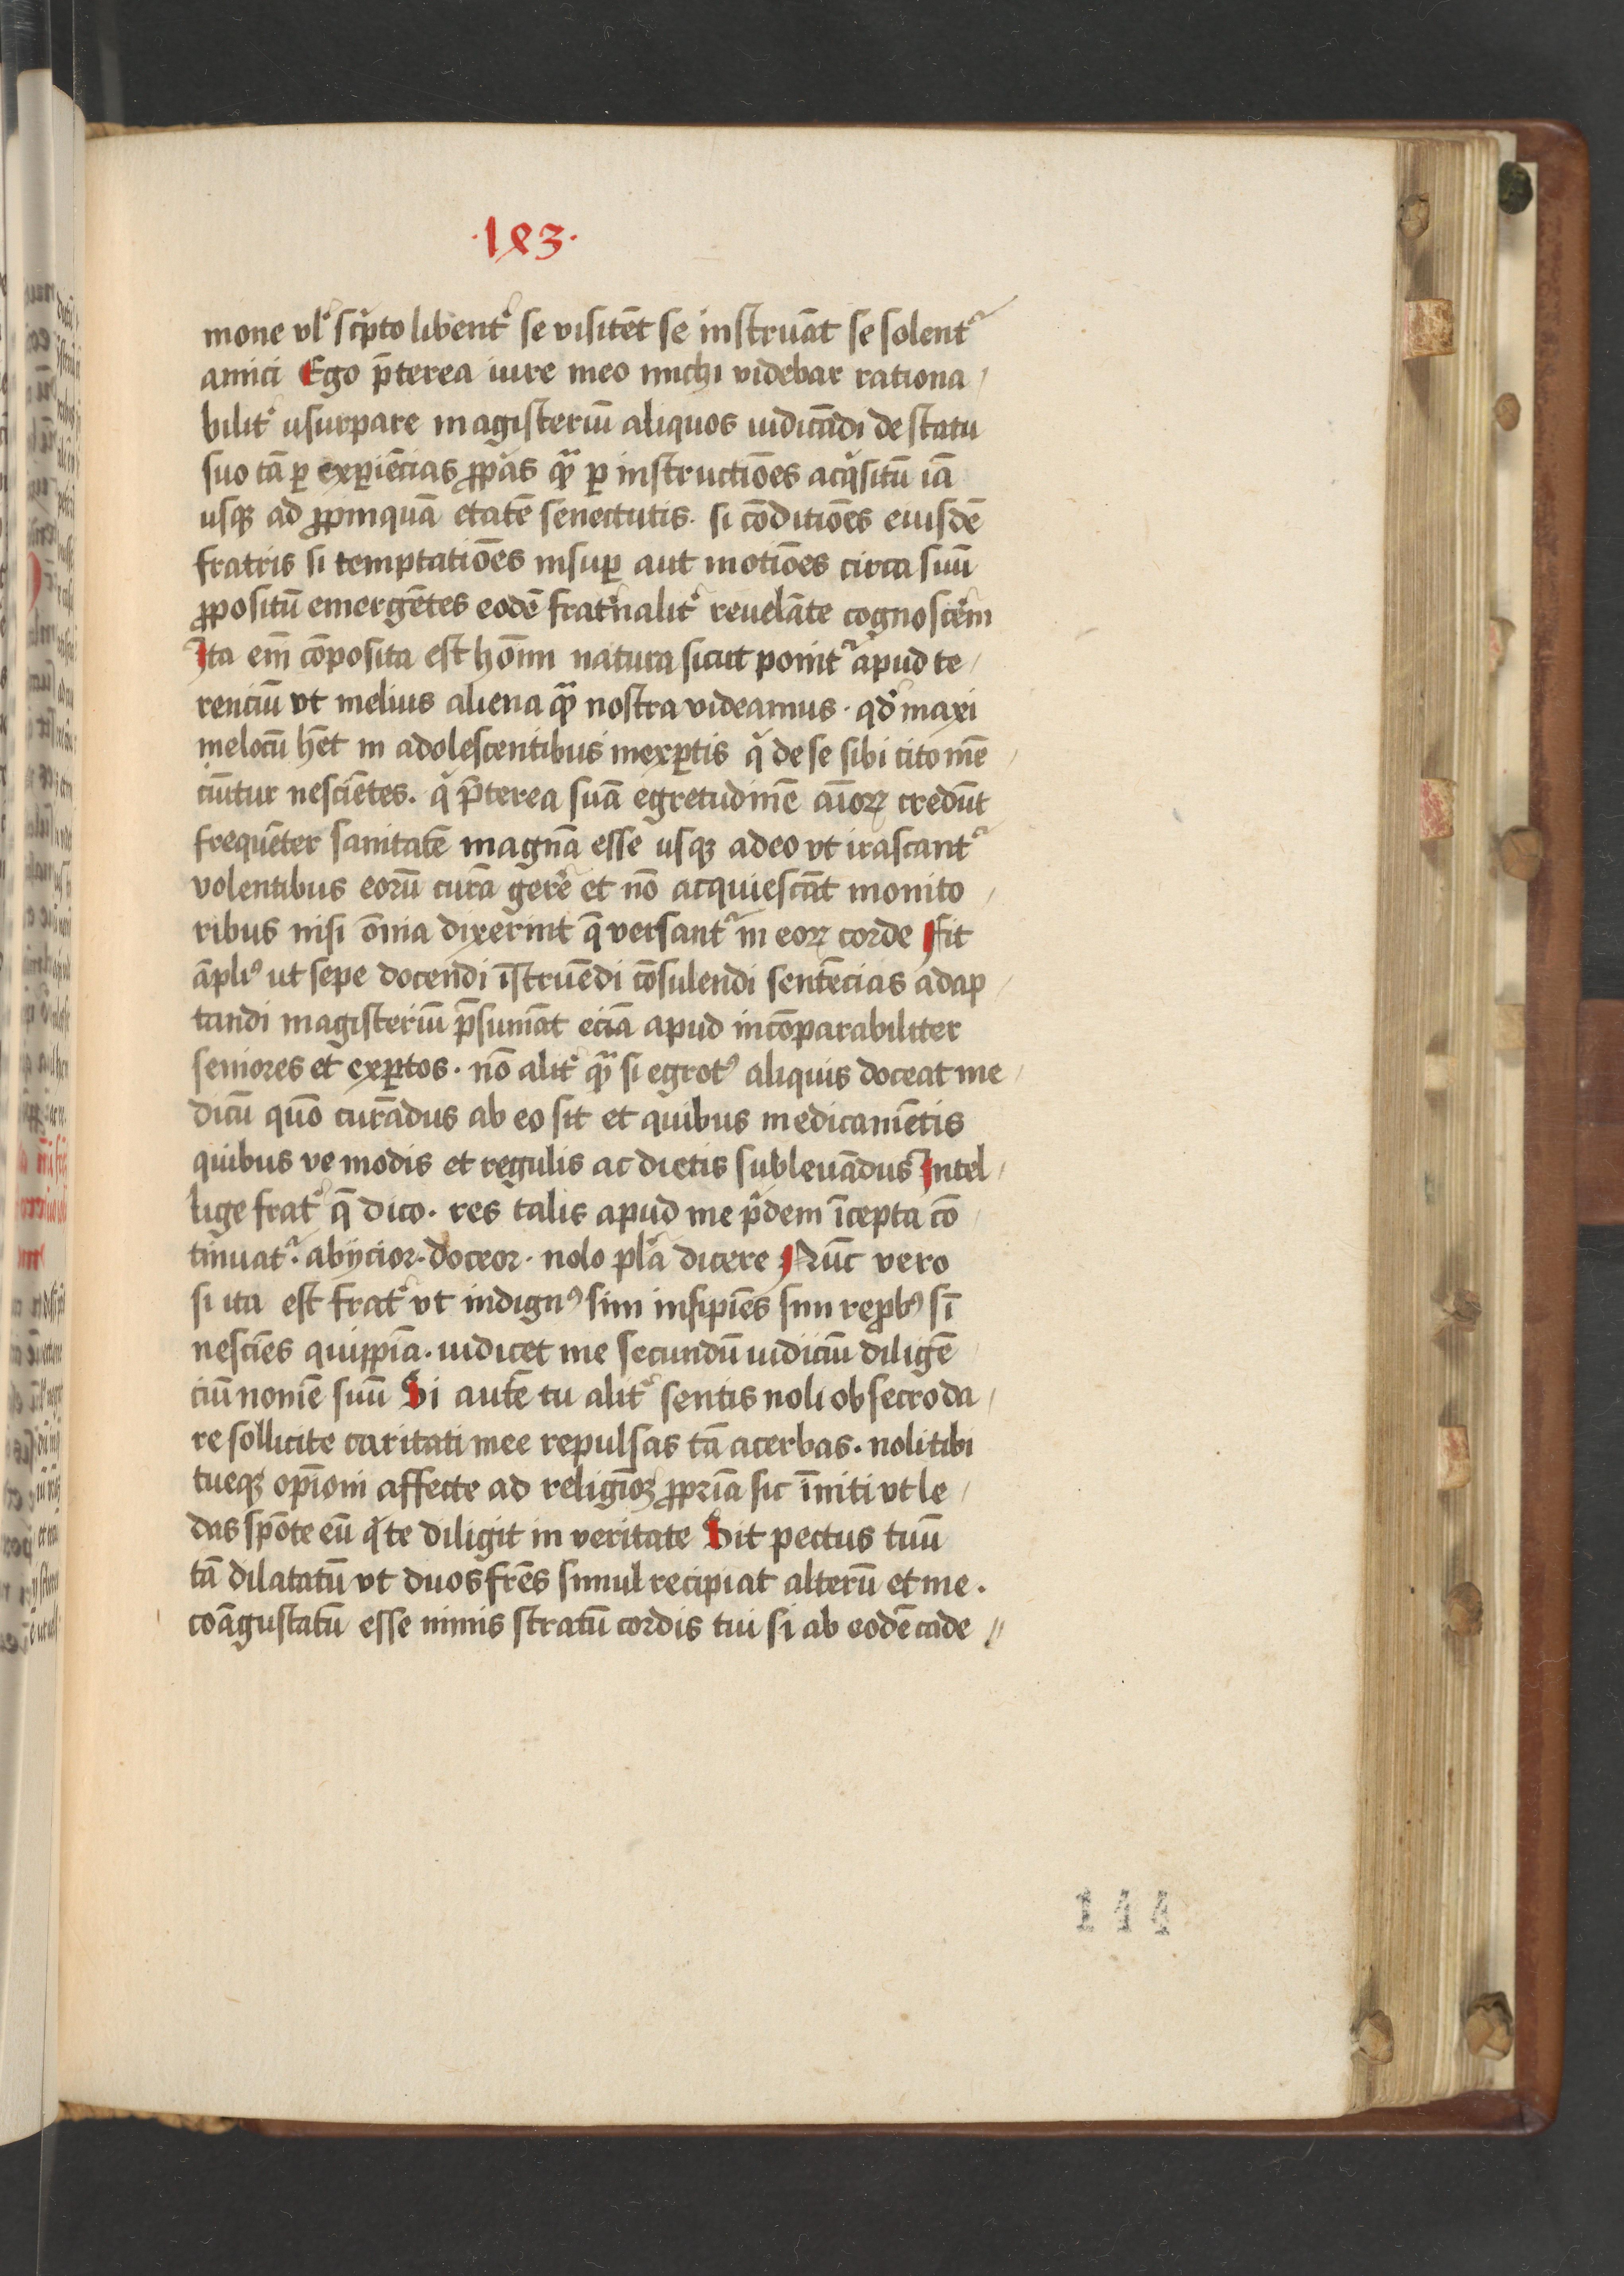 ·lx3·
mone vl' sc'pto libent' se visitēt se instruāt se solent'
amici Ego p̄terea iure meo michi videbar rationa
bilit' usurpare magisteriū aliquos iudicādi de statu
suo tā ꝑ exꝑiēcias ꝓp'as qᷓ ꝑ instructiōes acq'situ iā
usqꝫ ad ꝓpinquā etatē senectutis· si cōditiōes eiusdē
fratris si temptatiōes insuꝑ aut motiōes circa suū
ꝓpositū emergētes eodē frat'nalit' reuelāte cognoscē'm
Ita em̄ cōposita est hom̄ natura sicut ponit' apud te
renciū vt melius aliena qᷓ nostra videamus · qd' maxi
me locū hēt in adolescentibus inexꝑtis q' de se sibi cito mē
ciūtur nesciētes. q' p̄terea suā egretudinē aīoꝝ credūt
frequēter sanitatē magnā esse usqꝫ adeo vt irascant'
volentibus eorū curā gere' et nō acquiescāt monito
ribus nisi om̄ia dixerint q̄ versant' in eoꝝ corde Fit
āpl' ut sepe docendi īstruēdi cōsulendi sentēcias adap
tandi magisteriū p̄sumāt eciā apud incōparabiliter
seniores et exꝑtos · nō alit' qᷓ si egrotꝰ aliquis doceat me
dicū quō curādus ab eo sit et quibus medicamētis
quibus ve modis et regulis ac dietis subleuādus Intel
lige frat' q̄ dico · res talis apud me p'dem īcepta cō
tinuat' · abijcior · doceor · nolo pl'a dicere Nūc vero
si ita est frat' vt indignꝰ sim insipiēs sim reꝓbꝰ sī
nesciēs quippiā · iudicet me secundū iudiciū diligē
ciū nomē suū Si autē tu alit' sentis noli obsecro da
re sollicite caritati mee repulsas tā acerbas · noli tibi
tueqꝫ opīoni affecte ad religioꝫ ꝓpriā sic īniti vt le
das spōte eū q' te diligit in veritate Sit pectus tuū
tā dilatatū vt duos frēs simul recipiat alterū et me ·
coāgustatū esse nimis stratū cordis tui si ab eodē cade
144